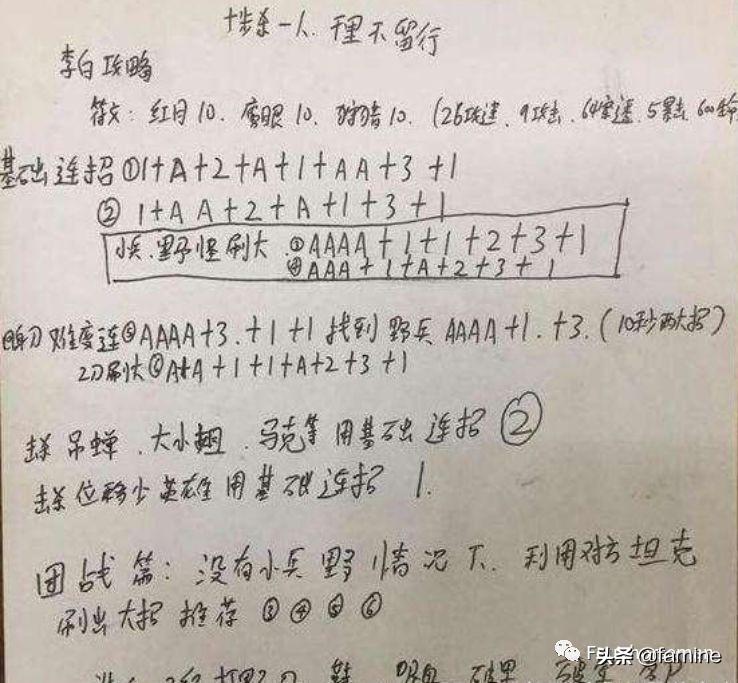 十步杀一人、千里不留行
李白攻略
符文：红月10、鹰眼10、狩猎10、(26攻速、9攻击、64穿透、5暴击、600
基础连招①1+A+2+A+1+AA+3+1
②1+AA+2+A+1+3+1
小兵、野怪刷大、③AAAA+1+1+2+3+1
④AAA+1+A+2+3+1
难度连⑤AAAA+3、+1+1找到野兵AAAA+1、+3、(10秒两大招)
2刀刷大⑥A+A+1+1+A+2+3+1
杀吊蝉、大小翘、马克等用基础连招②
杀位移少英雄用基础连招1.
团战篇：没有小兵野情况下、利用对方坦克
刷出大招推荐③④⑤⑥
头条@famine